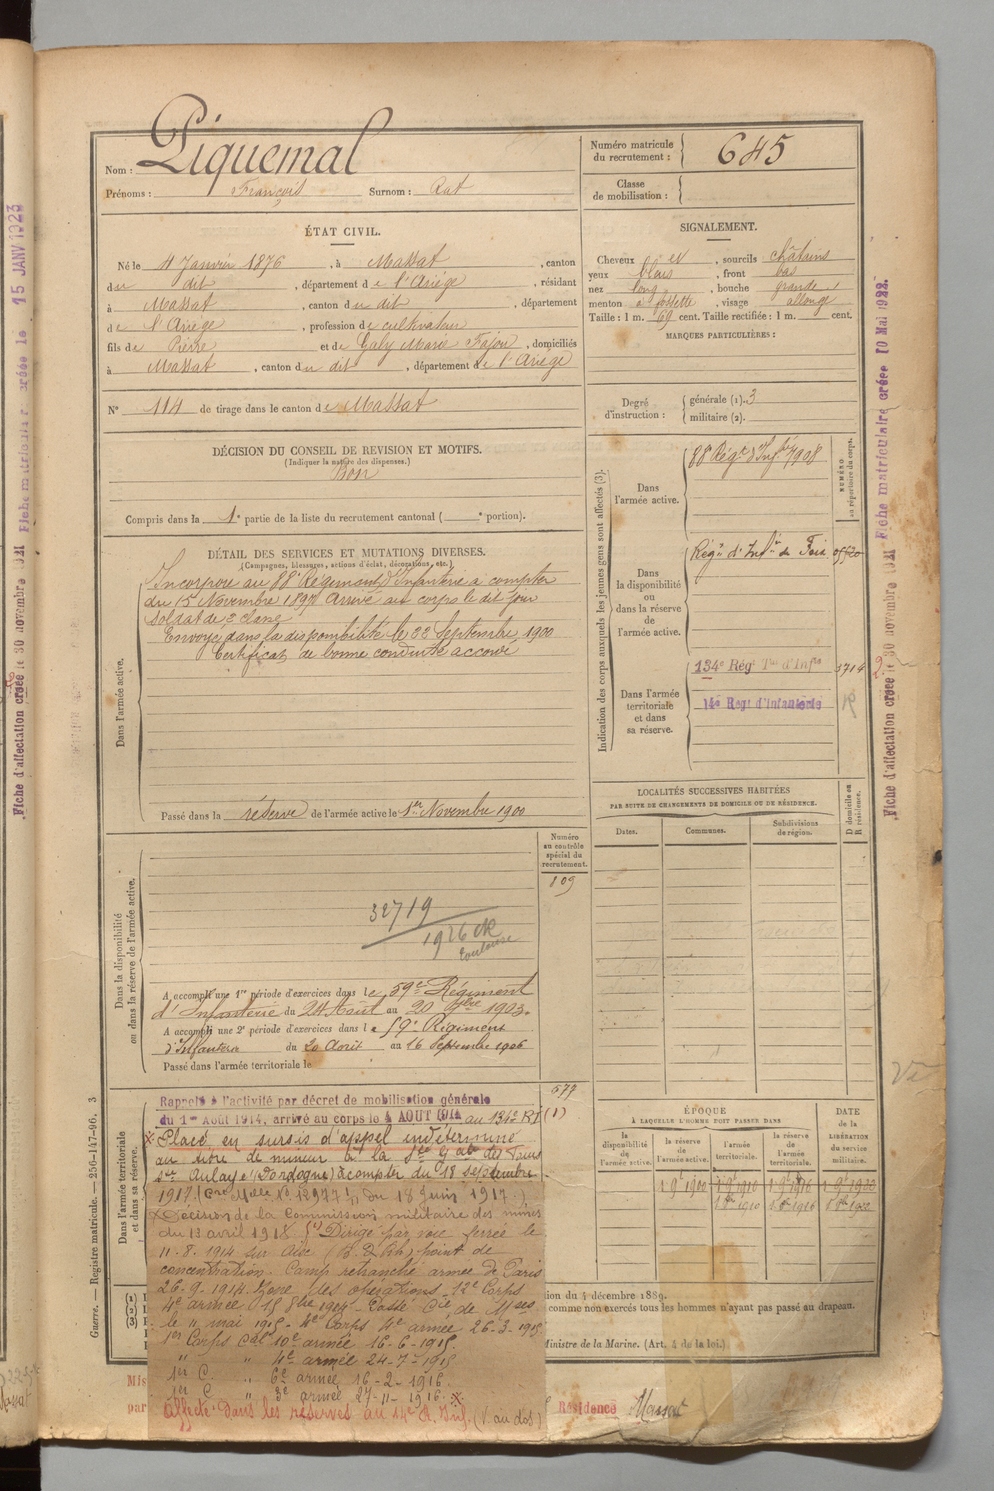 Nom : Piquemal
Prénoms : François Surnom : Rat
Numéro matricule du recrutement : 645
Classe de mobilisation :
ÉTAT CIVIL.
Né le 4 Janvier 1876, à Massat, canton
du dit, département de l'Ariège, résidant
à Massat, canton du dit, département
de l'Ariège, profession de cultivateur
fils de Pierre et de Galy Marie Fajou, domiciliés
à Massat, canton du dit, département de l'Ariège
N° 114 de tirage dans le canton de Massat
DÉCISION DU CONSEIL DE REVISION ET MOTIFS.
(Indiquer la nature des dispenses.)
Bon
Compris dans la 1e partie de la liste du recrutement cantonal ( e portion).
DÉTAIL DES SERVICES ET MUTATIONS DIVERSES.
(Campagnes, blessures, actions d'éclat, décorations, etc.)
Dans l'armée active.
Incorporé au 88e Régiment d'Infanterie à compter
du 15 Novembre 1897 Arrivé au corps le dit jour
Soldat de 2e classe
Envoyé dans la disponibilité le 22 Septembre 1900
Certificat de bonne conduite accordé
Passé dans la réserve de l'armée active le 1er Novembre 1900
Numéro au contrôle spécial du recrutement.
109
Dans la disponibilité ou dans la réserve de l'armée active.
32719
1926 CR
Toulouse
A accompli une 1re période d'exercices dans le 59e Régiment
d'Infanterie du 24 Août au 20 7bre 1903.
A accompli une 2e période d'exercices dans le 59e Régiment
d'Infanterie du 20 Août au 16 Septembre 1906
Passé dans l'armée territoriale le
679
Dans l'armée territoriale et dans sa réserve.
Rappelé à l'activité par décret de mobilisation générale
du 1er Août 1914, arrivé au corps le 4 AOUT 1914 au 134e RT (1)
Placé en sursis d'appel indéterminé
au titre de mineur à la
Aulaye (Dordogne) à compter du 18 septembre
1917 12977 du 18 Juin 1917.)
Décision de la Commission militaire des mines
du 13 avril 1918 (1) Dirigé par voie ferrée le
11-8-1914 sur point de
concentration. Camp retranché armée de Paris
26-9-1914. Zone des opérations 12e Corps
4e armée 15 8bre 1914. Passé Cie de
le 11 mai 1915 - 4e Corps 4e armée 26-3-1915
1er Corps Cal 10e armée 16-6-1915.
" " 4e armée 24-7-1915
1er C. " 6e armée 16-2-1916.
1er C. " 3e armée 27-11-1916.
Affecté dans les réserves au 14e R. Inf. (V. au dos)
SIGNALEMENT.
Cheveux et, sourcils châtains
yeux bleus, front bas
nez long, bouche grande
menton à fossette, visage allongé
Taille : 1 m. 69 cent. Taille rectifiée : 1 m. cent.
MARQUES PARTICULIÈRES :
Degré d'instruction : générale (1). 3
militaire (2).
Indication des corps auxquels les jeunes gens sont affectés (3).
NUMÉRO au répertoire du corps.
Dans l'armée active.
88e Régt d'Infie 7908
Dans la disponibilité ou dans la réserve de l'armée active.
Régt d'Infie de Foix
Dans l'armée territoriale et dans sa réserve.
134e Régt Tal d'Infie 3714
14e Régt d'Infanterie
LOCALITÉS SUCCESSIVES HABITÉES
PAR SUITE DE CHANGEMENTS DE DOMICILE OU DE RÉSIDENCE.
Dates. Communes. Subdivisions de région. D domicile ou R résidence.
ÉPOQUE
À LAQUELLE L'HOMME DOIT PASSER DANS
la disponibilité. la réserve de l'armée active. l'armée territoriale. la réserve de l'armée territoriale.
DATE de la LIBÉRATION du service militaire.
1 9bre 1900 1 9bre 1910 1 9bre 1916 1 9bre 1922
ion du 5 décembre 1889.
comme non exercés tous les hommes n'ayant pas passé au drapeau.
Ministre de la Marine. (Art. 4 de la loi.)
Mis
par
Résidence Massat
Guerre. — Registre matricule. — 256-147-96. 3
Fiche d'affectation créée le 30 novembre 1921
Fiche matriculaire créée le 15 JANV 1923
Fiche d'affectation créée le 30 novembre 1921
Fiche matriculaire créée 10 Mai 1922.